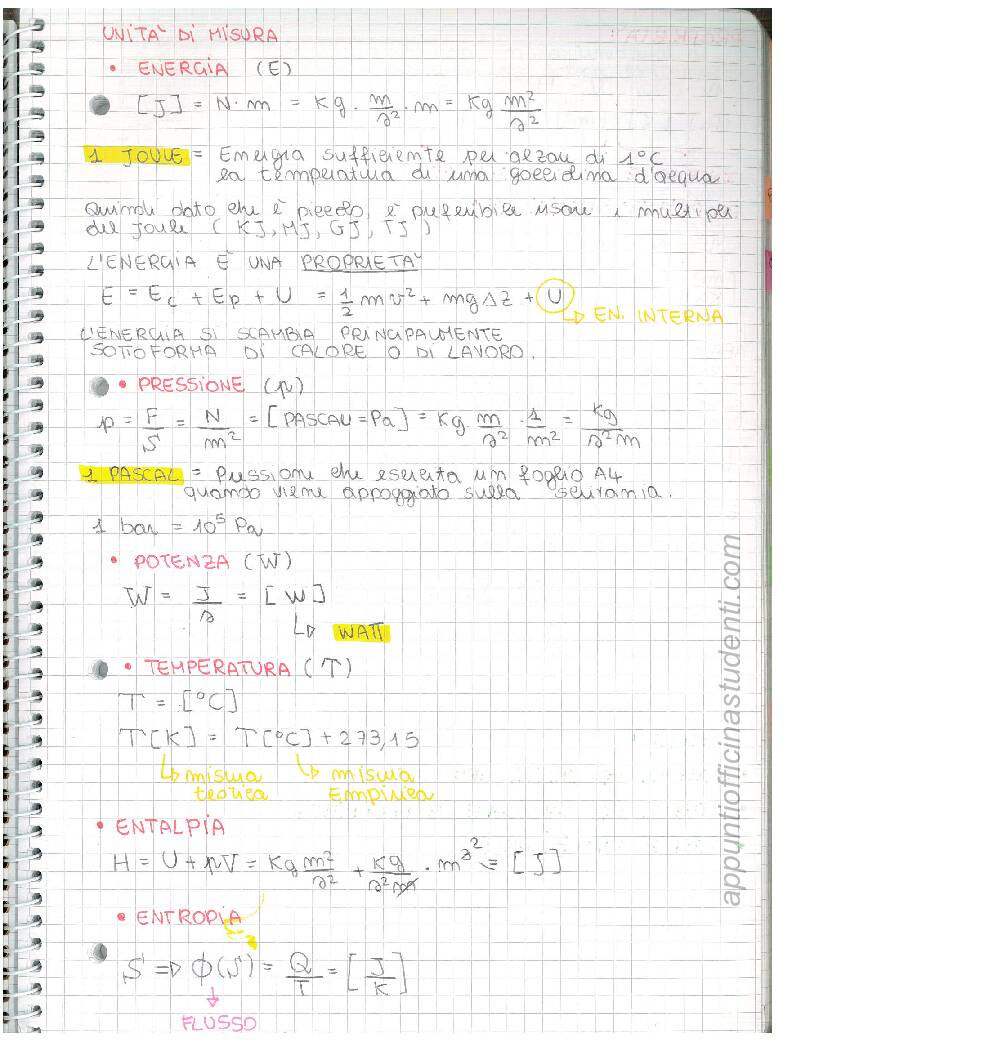 UNITA' DI MISURA
• ENERGIA (E)
[J] = N·m = Kg · m/s² · m = Kg m²/s²
1 JOULE = Energia sufficiente per alzare di 1°C
la temperatura di una gocciolina d'acqua
Quindi dato che è piccolo, è preferibile usare i multipli
del Joule (KJ, MJ, GJ, TJ)
L'ENERGIA È UNA PROPRIETA'
E = Ec + Ep + U = 1/2 mv² + mgΔZ + U
↳ EN. INTERNA
L'ENERGIA SI SCAMBIA PRINCIPALMENTE
SOTTOFORMA DI CALORE O DI LAVORO.
• PRESSIONE (p)
p = F/S = N/m² = [PASCAL=Pa] = Kg · m/s² · 1/m² = kg/s²m
1 PASCAL = Pressione che esercita un foglio A4
quando viene appoggiato sulla scrivania.
1 bar = 10⁵ Pa
• POTENZA (W)
W = J/s = [W]
↳ WATT
• TEMPERATURA (T)
T = [°C]
T[K] = T[°C] + 273,15
↳ misura teorica ↳ misura Empirica
• ENTALPIA
H = U + pV = Kg m²/s² + Kg/s²m · m³ ² = [J]
• ENTROPIA
S ⇒ Φ(S) = Q/T = [J/K]
↓
FLUSSO
appuntiofficinastudenti.com